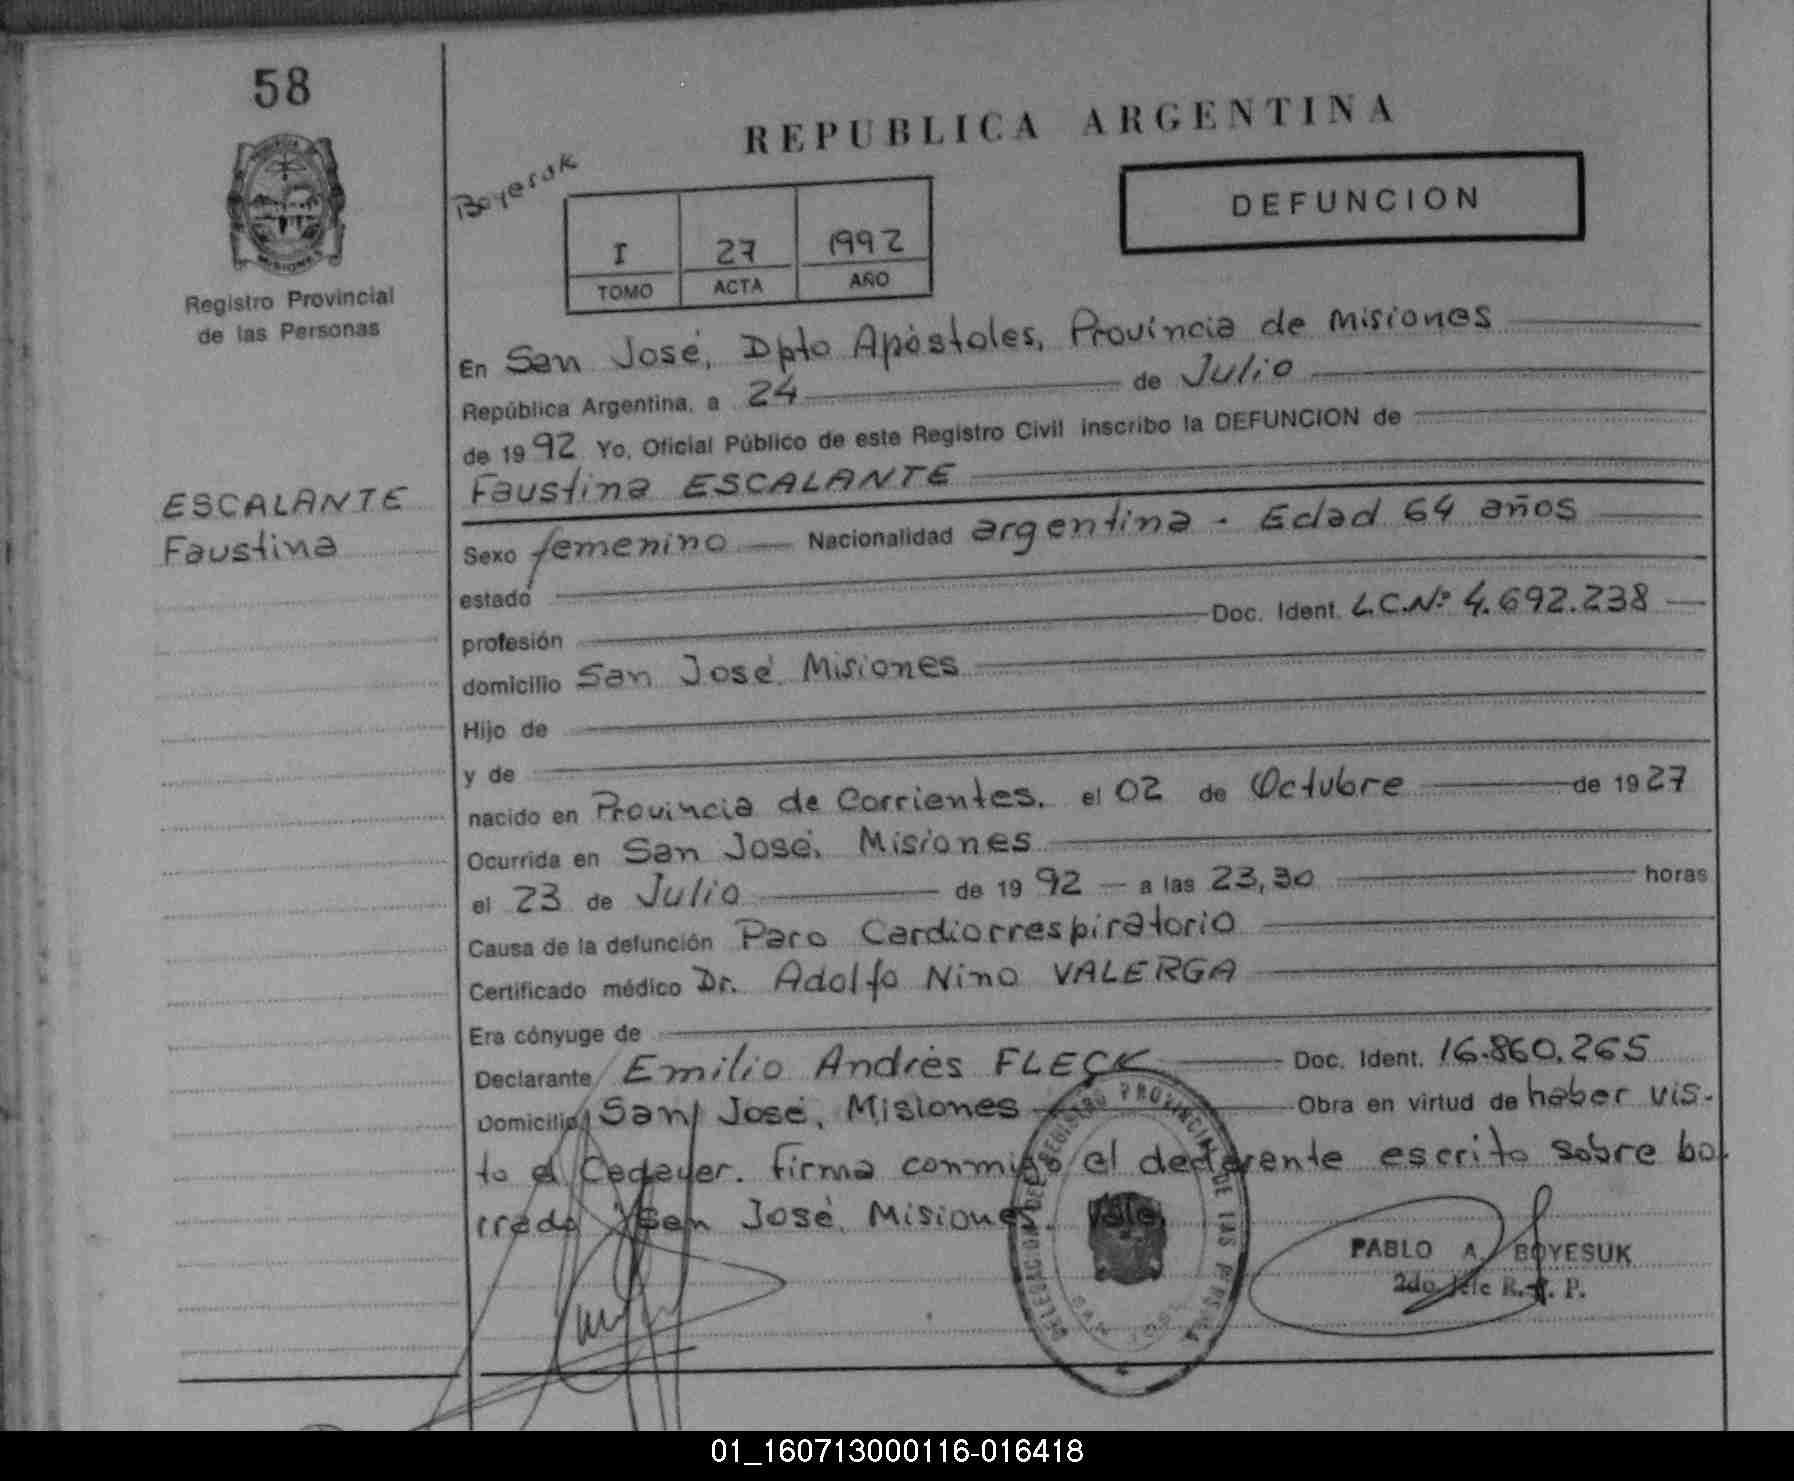 58
REPUBLICA ARGENTINA
Boyesuk
DEFUNCION
I 27 1992
TOMO ACTA AÑO
MISIONES
Registro Provincial
de las Personas
En San José, Dpto Apóstoles, Provincia de Misiones
República Argentina, a 24 de Julio
de 1992 Yo, Oficial Público de este Registro Civil inscribo la DEFUNCION de
ESCALANTE
Faustina
Faustina ESCALANTE
Sexo femenino Nacionalidad argentina - Edad 64 años
estado
profesión Doc. Ident. L.C.Nº 4.692.238
domicilio San José, Misiones
Hijo de
y de
nacido en Provincia de Corrientes, el 02 de Octubre de 1927
Ocurrida en San José, Misiones
el 23 de Julio de 1992 a las 23,30 horas
Causa de la defunción Paro Cardiorrespiratorio
Certificado médico Dr. Adolfo Nino VALERGA
Era cónyuge de
Declarante Emilio Andrés FLECK Doc. Ident. 16.860.265
Domicilio San José, Misiones Obra en virtud de haber vis-
to el Cadaver. Firma conmigo el declarente escrito sobre bo-
rrado "San José, Misiones. Vale
DELEGACION DEL REGISTRO PROVINCIAL DE LAS PERSONAS
SAN JOSE
PABLO A. BOYESUK
2do. Jefe R. P. P.
01_160713000116-016418